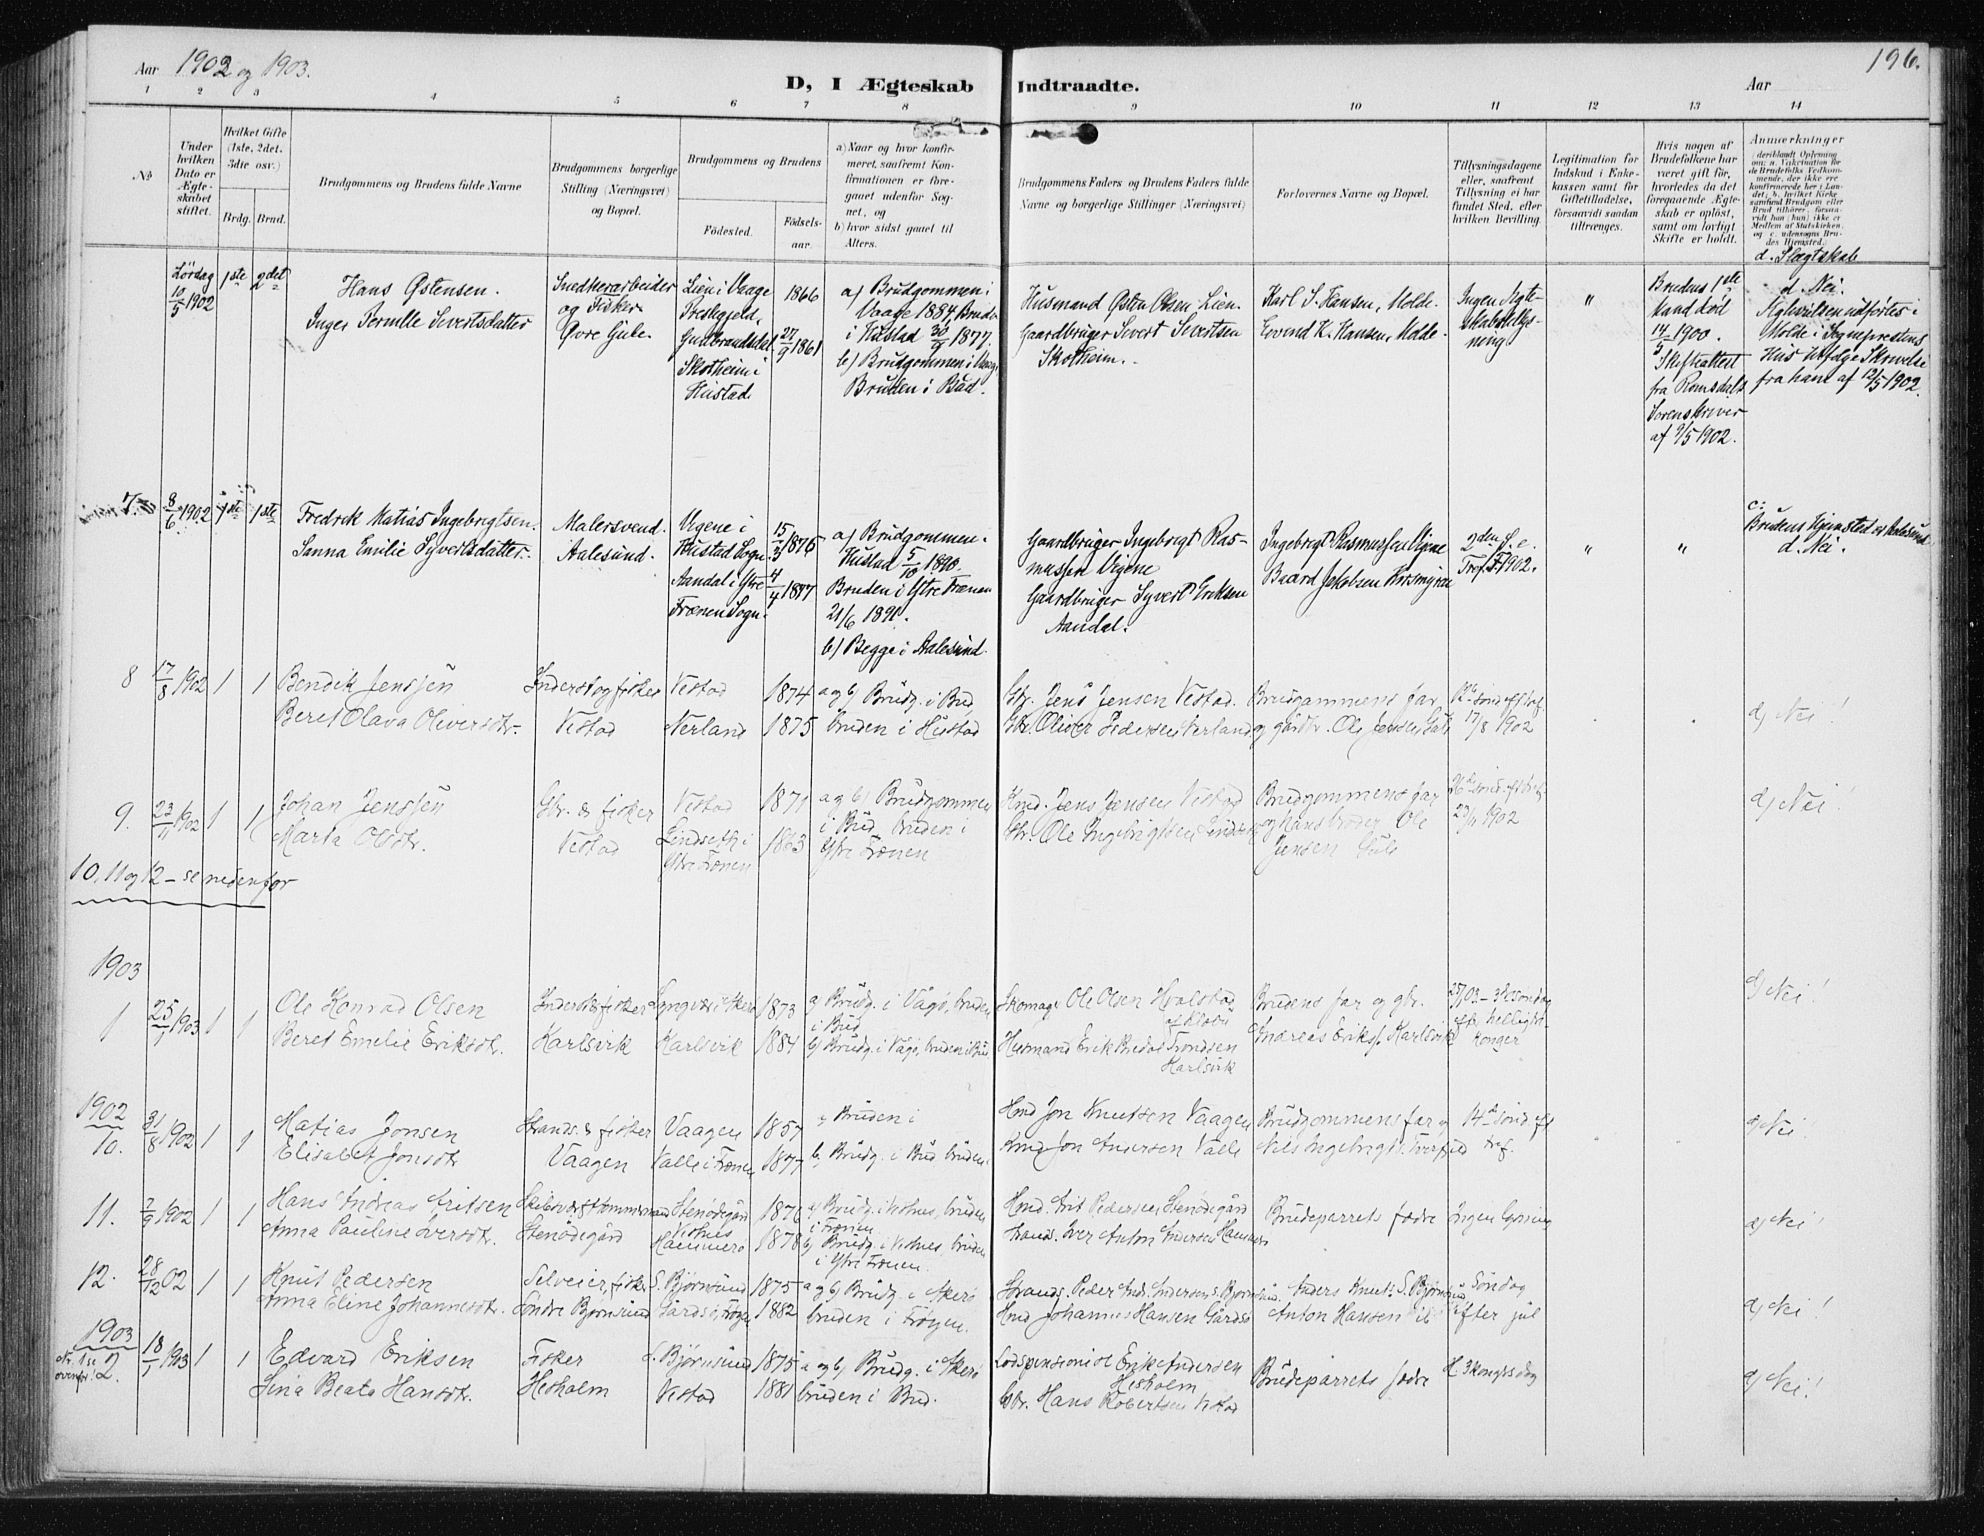 Aar 1902 og 1903.
D, I Ægteskab Indtraadte.
Aar
196.
1 2 3 4 5 6 7 8 9 10 11 12 13 14
No
Under hvilken Dato er Ægteskabet stiftet.
Hvilket Gifte (1ste, 2det, 3die osv.)
Brdg. Brud.
Brudgommens og Brudens fulde Navne
Brudgommens borgerlige Stilling (Næringsvei) og Bopæl.
Brudgommens og Brudens
Fødested. Fødselsaar.
a) Naar og hvor konfirmeret, saafremt Konfirmationen er foregaaet udenfor Sognet, og
b) hvor sidst gaaet til Alters.
Brudgommens Faders og Brudens Faders fulde Navne og borgerlige Stillinger (Næringsvei)
Forlovernes Navne og Bopæl.
Tillysningsdagene eller, saafremt Tillysning ei har fundet Sted, efter hvilken Bevilling
Legitimation for Indskud i Enkekassen samt for Giftetilladelse, forsaavidt saadan tiltrænges.
Hvis nogen af Brudefolkene har været gift før, hvorledes da det foregaaende Ægteskab er opløst, samt om lovligt Skifte er holdt.
Anmærkninger
d. Slægtskab
Lördag 10/5 1902 1ste 2det
Hans Østensen.
Inger Pernille Severtsdatter
Snedkerarbeider og Fisker
Øvre Gule.
Lien i Vaage Prestegjeld, Gudbrandsdal
Skotheim i Hustad.
1866
27/9 1861
a) Brudgommen i Vaage 1884, Bruden i Hustad 30/9 1877.
b) Brudgommen i Vaage, Bruden i Bud.
Husmand Østen Olsen Lien.
Gaardbruger Severt Severtsen Skotheim.
Karl S. Hansen, Molde.
Eovind K. Hansen, Molde.
Ingen Ægteskabslysning
"
Brudens 1ste Mand död 14/5 1900.
Skifteattest fra Romsdals Sorenskriver af 9/5 1902.
d. Nei.
Ægtevielsen udförtes i Molde i Sogneprestens Hus ifølge Skrivelse fra ham af 12/5 1902.
7. 8/6 1902 1ste 1ste
Fredrik Matias Ingebrigtsen.
Sanna Emilie Syvertsdatter.
Malersvend.
Aalesund.
Vigene i Hustad Sogn
Aandal i Ytre Frænen Sogn.
15/3 1876
4/4 1877
a) Brudgommen i Hustad 5/10 1890.
Bruden i Ytre Frænen 21/6 1891.
b) Begge i Aalesund.
Gaardbruger Ingebrigt Rasmussen Vigene
Gaardbruger Syvert Eriksen Aandal.
Ingebrigt Rasmussen Vigene
Baard Jakobsen
2den S. e. Tref. 1902.
" "
c: Brudens Hjemsted er Aalesund
d. Nei.
8 17/8 1902 1 1
Bendik Jenssen
Beret Olava Oliversdtr.
Inderst og fisker
Vestad
Vestad
Nerland
1874
1875
a og b) Brudg. i Bud,
bruden i Hustad
Gbr. Jens Jensen Vestad.
Gbr. Oliver Pedersen Nerland
Brudgommens far
og gårdbr. Ole Jensen Gule
12te sønd. eft. tref.
17/8 1902
d) Nei!
9. 23/11 1902 1 1
Johan Jenssen
Marta Olsdtr.
Gbr. & fisker
Vestad
Vestad
Lindseth i Ytre Frænen
1871
1863
a og b) Brudgommen i Bud, bruden i Ytre Frænen
Kmd. Jens Jensen Vestad
Gbr. Ole Ingebrigtsen Lindset
Brudgommens far
og hans broder Ole Jensen Gule
26de sønd. eft. tref.
23/11 1902
d) Nei!
10, 11 og 12 – se nedenfor
1903
1 25/1 1903 1 1
Ole Konrad Olsen
Beret Emelie Eriksdtr.
Inderst & fisker
Karlsvik
Lyngvær i Akerø
Karlsvik
1873
1884
a) Brudg. i Vågø, bruden i Bud
b) Brudg. i Vågø, bruden i Bud.
Skomag. Ole Olsen Hvalstad af Klæbu
Husmand Erik Bredal Trondsen Karlsvik
Brudens far og gbr.
Andreas Eriks. Karlsvik
25/1 03 – 3de søndag
eft. helligtrekonger
d) Nei!
1902
10. 31/8 1902 1 1
Matias Jonsen
Elisabet Jonsdtr.
Strands. & fisker
Vaagen
Vaagen
Valle i Frænen
1857
1877
a) Bruden i
b) Brudg. i Bud bruden i
Hmd Jon Knutsen Vaagen
Hmd Jon Andersen Valle
Brudgommens far og
Nils Ingebrigts.
14de sønd eft tref.
d) Nei!
11. 7/9 1902 1 1
Hans Andreas Aritsen
Anna Pauline Iversdtr.
Skibsværftstømmermand
Stenødegård
Stenødegård Vestnes
Hammerø
1876
1878
a) Brudg. i Vestnes, bruden i Frænen
b) Brudg. i Vestnes, bruden i Ytre Frænen.
Hmd. Arit Pedersen Stenødegård
Strands. Iver Anton Andersen Hammerø
Brudeparrets fædre
Ingen lysning
d) Nei!
12. 28/12 02 1 1
Knut Pedersen
Anna Eline Johannesdtr.
Selveier, fisker
Søndre Bjørnsund
S. Bjørnsund
Gårdsø, Frøyen
1875
1882
a og b) Brudg. i Akerø
bruden i Frøyen.
Strands. Peder And. Andersen S. Bjørnsund.
Hmd Johannes Hansen Gårdsø
Anders Knuts. S. Bjørnsund
Anton Hansen
Søndag
efter jul
d) Nei!
1903
Nr. 1 se ovenfor! 2. 18/1 1903 1 1
Edvard Eriksen
Lina Beata Hansdtr.
Fisker
Hesholm
S. Bjørnsund
Vestad
1875
1881
a og b) Brudg. i Akerø
bruden i Bud.
Lodspensionist Erik Andersen Hesholm
Gbr. Hans Robertsen Vestad
Brudeparrets fædre
H. 3 kongersdag
d) Nei!